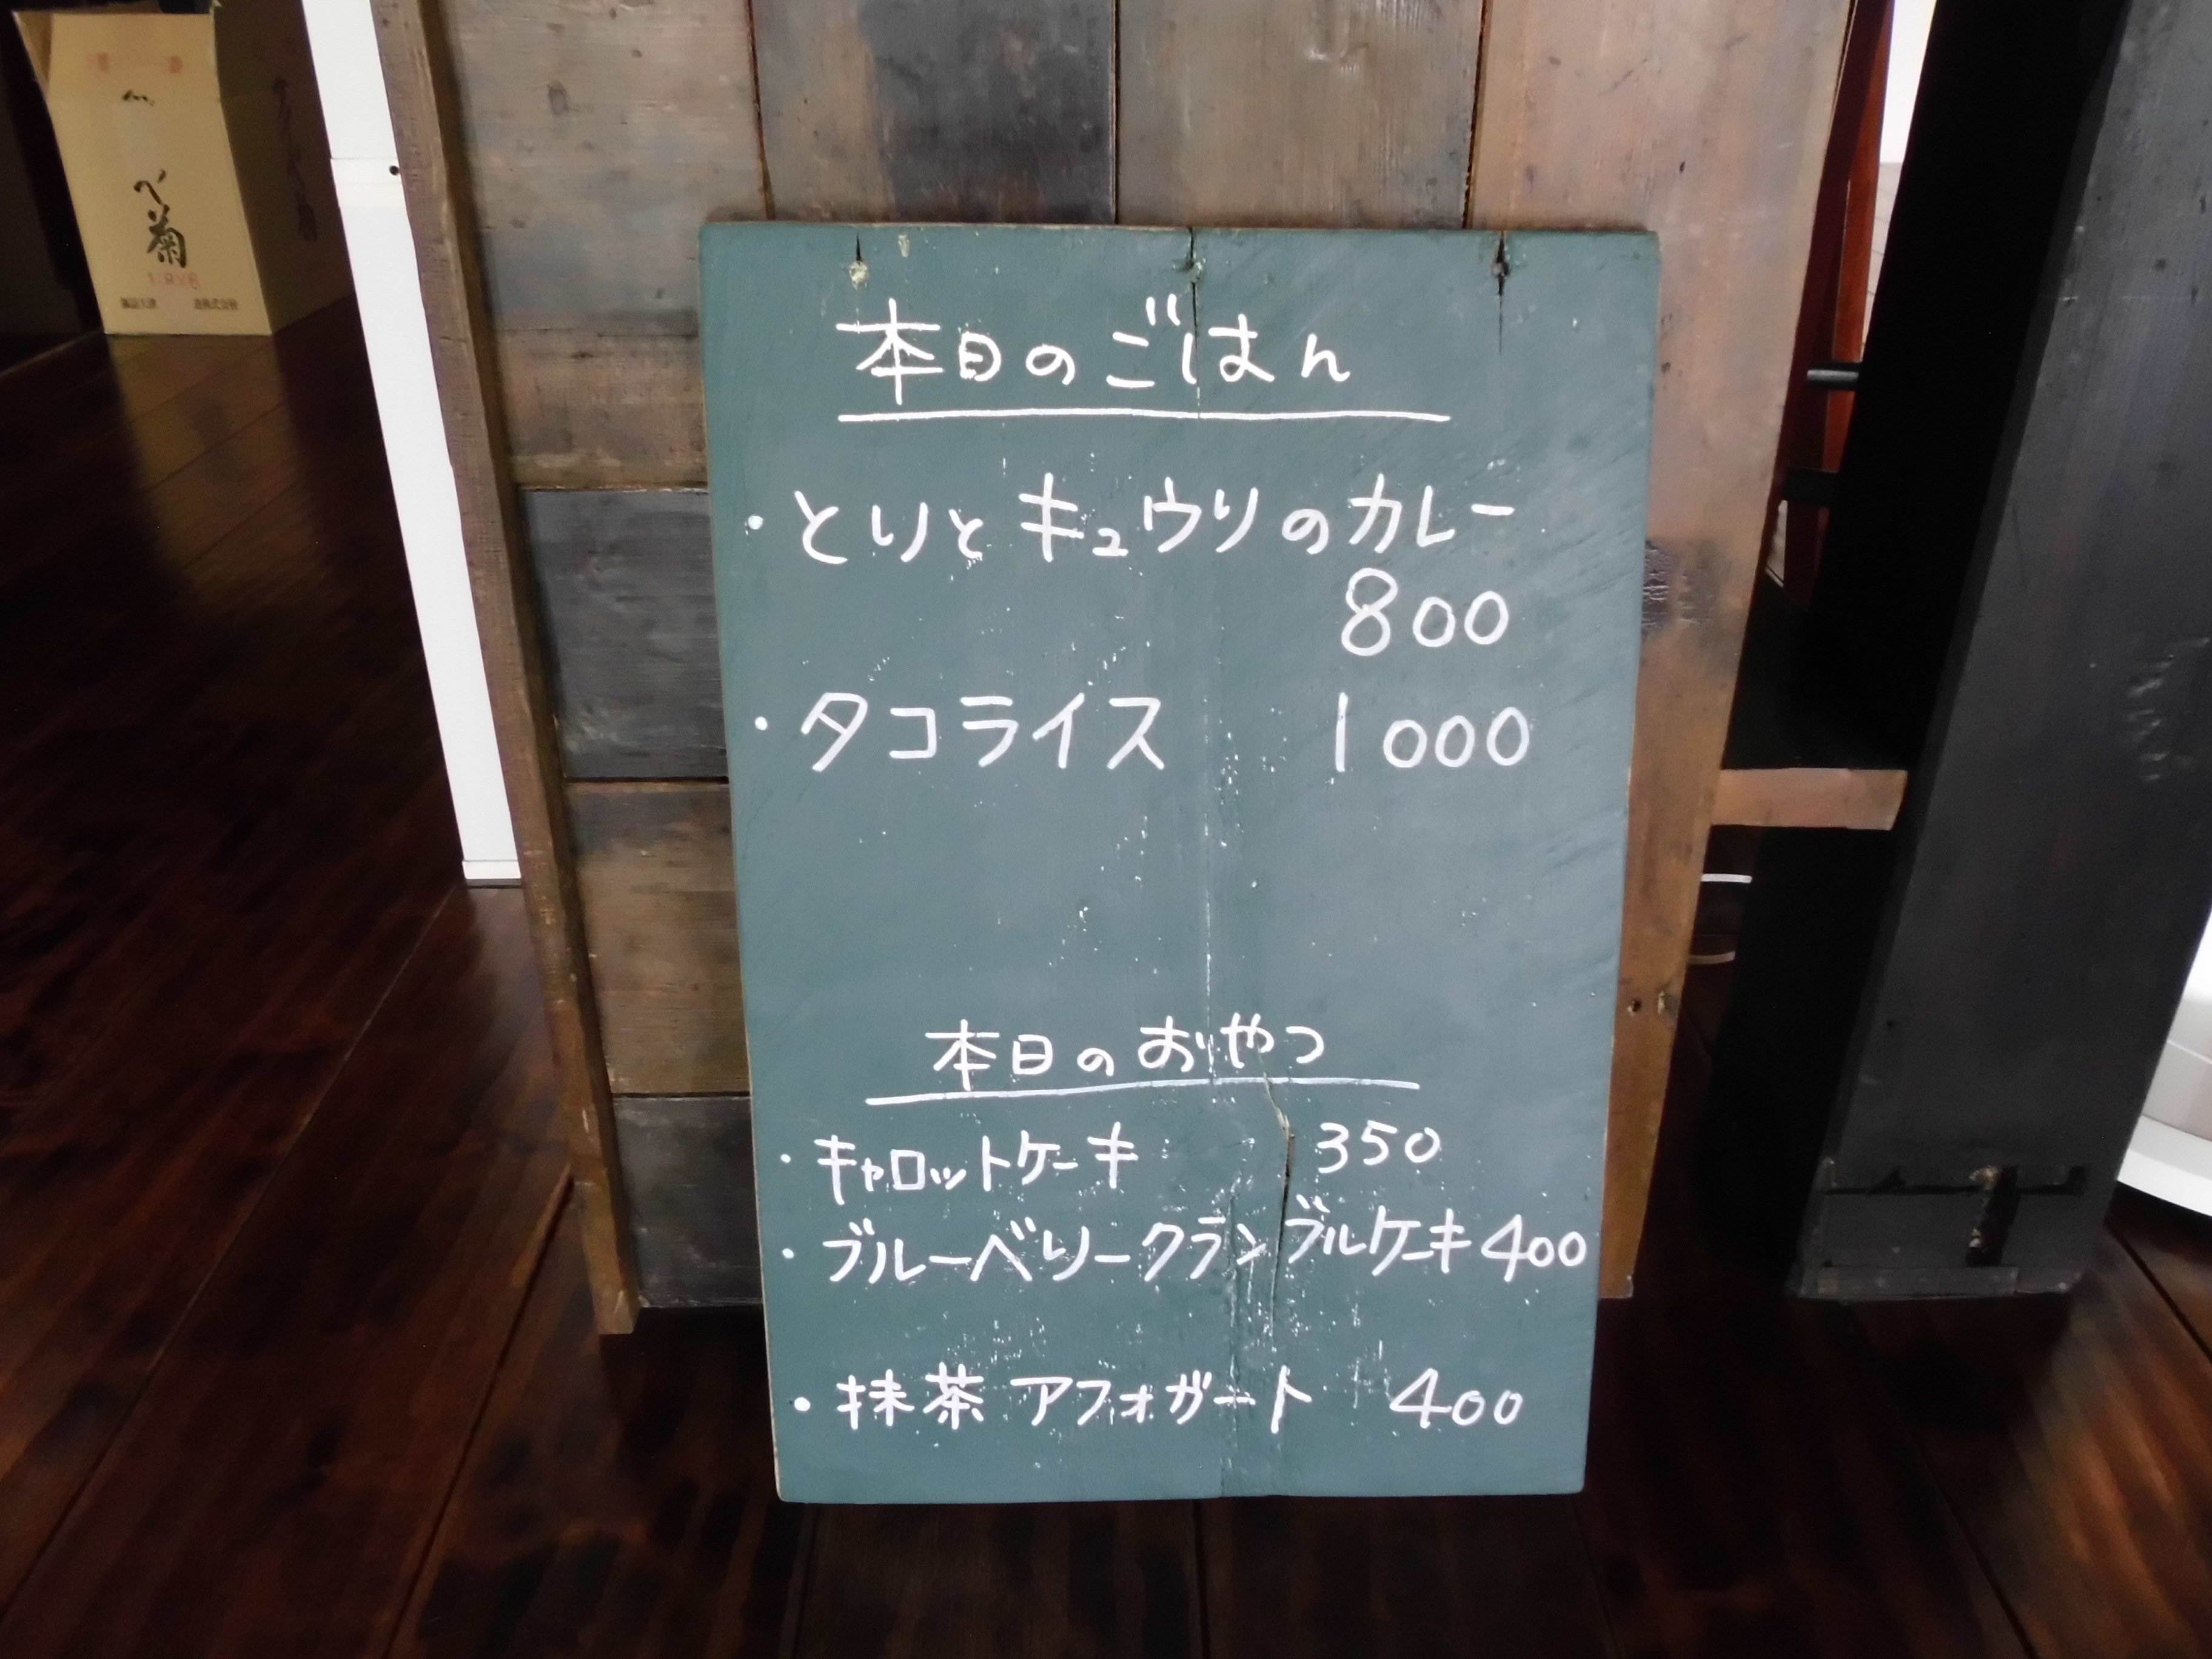 本日のごはん
・とりとキュウリのカレー
800
・タコライス 1000
本日のおやつ
・キャロットケーキ 350
・ブルーベリークランブルケーキ 400
・抹茶アフォガート 400
菊